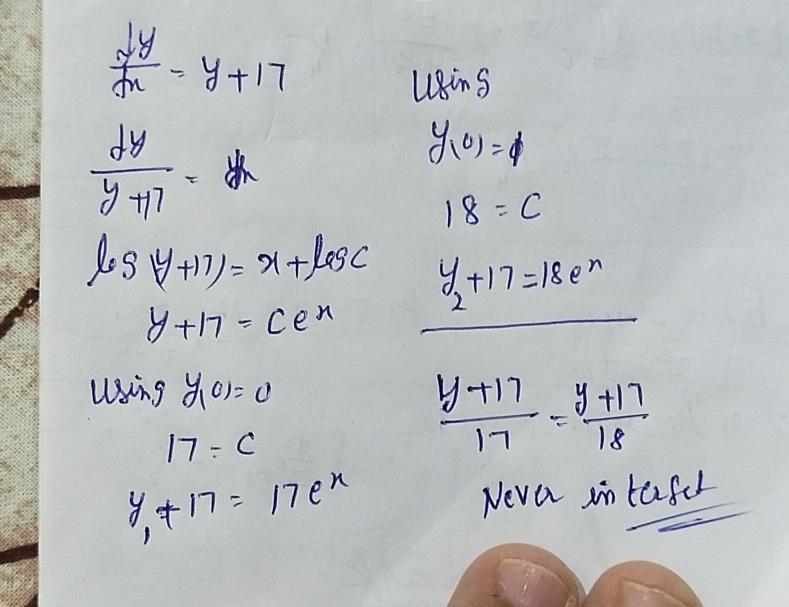 dy/dx = y + 17
dy/y+17 = dx
log (y+17) = x + log c
y + 17 = c eˣ
Using y(0) = 0
17 = c
y₁ + 17 = 17eˣ
Using
y(0) = 1
18 = c
y₂ + 17 = 18eˣ
y+17/17 = y+17/18
Never interset